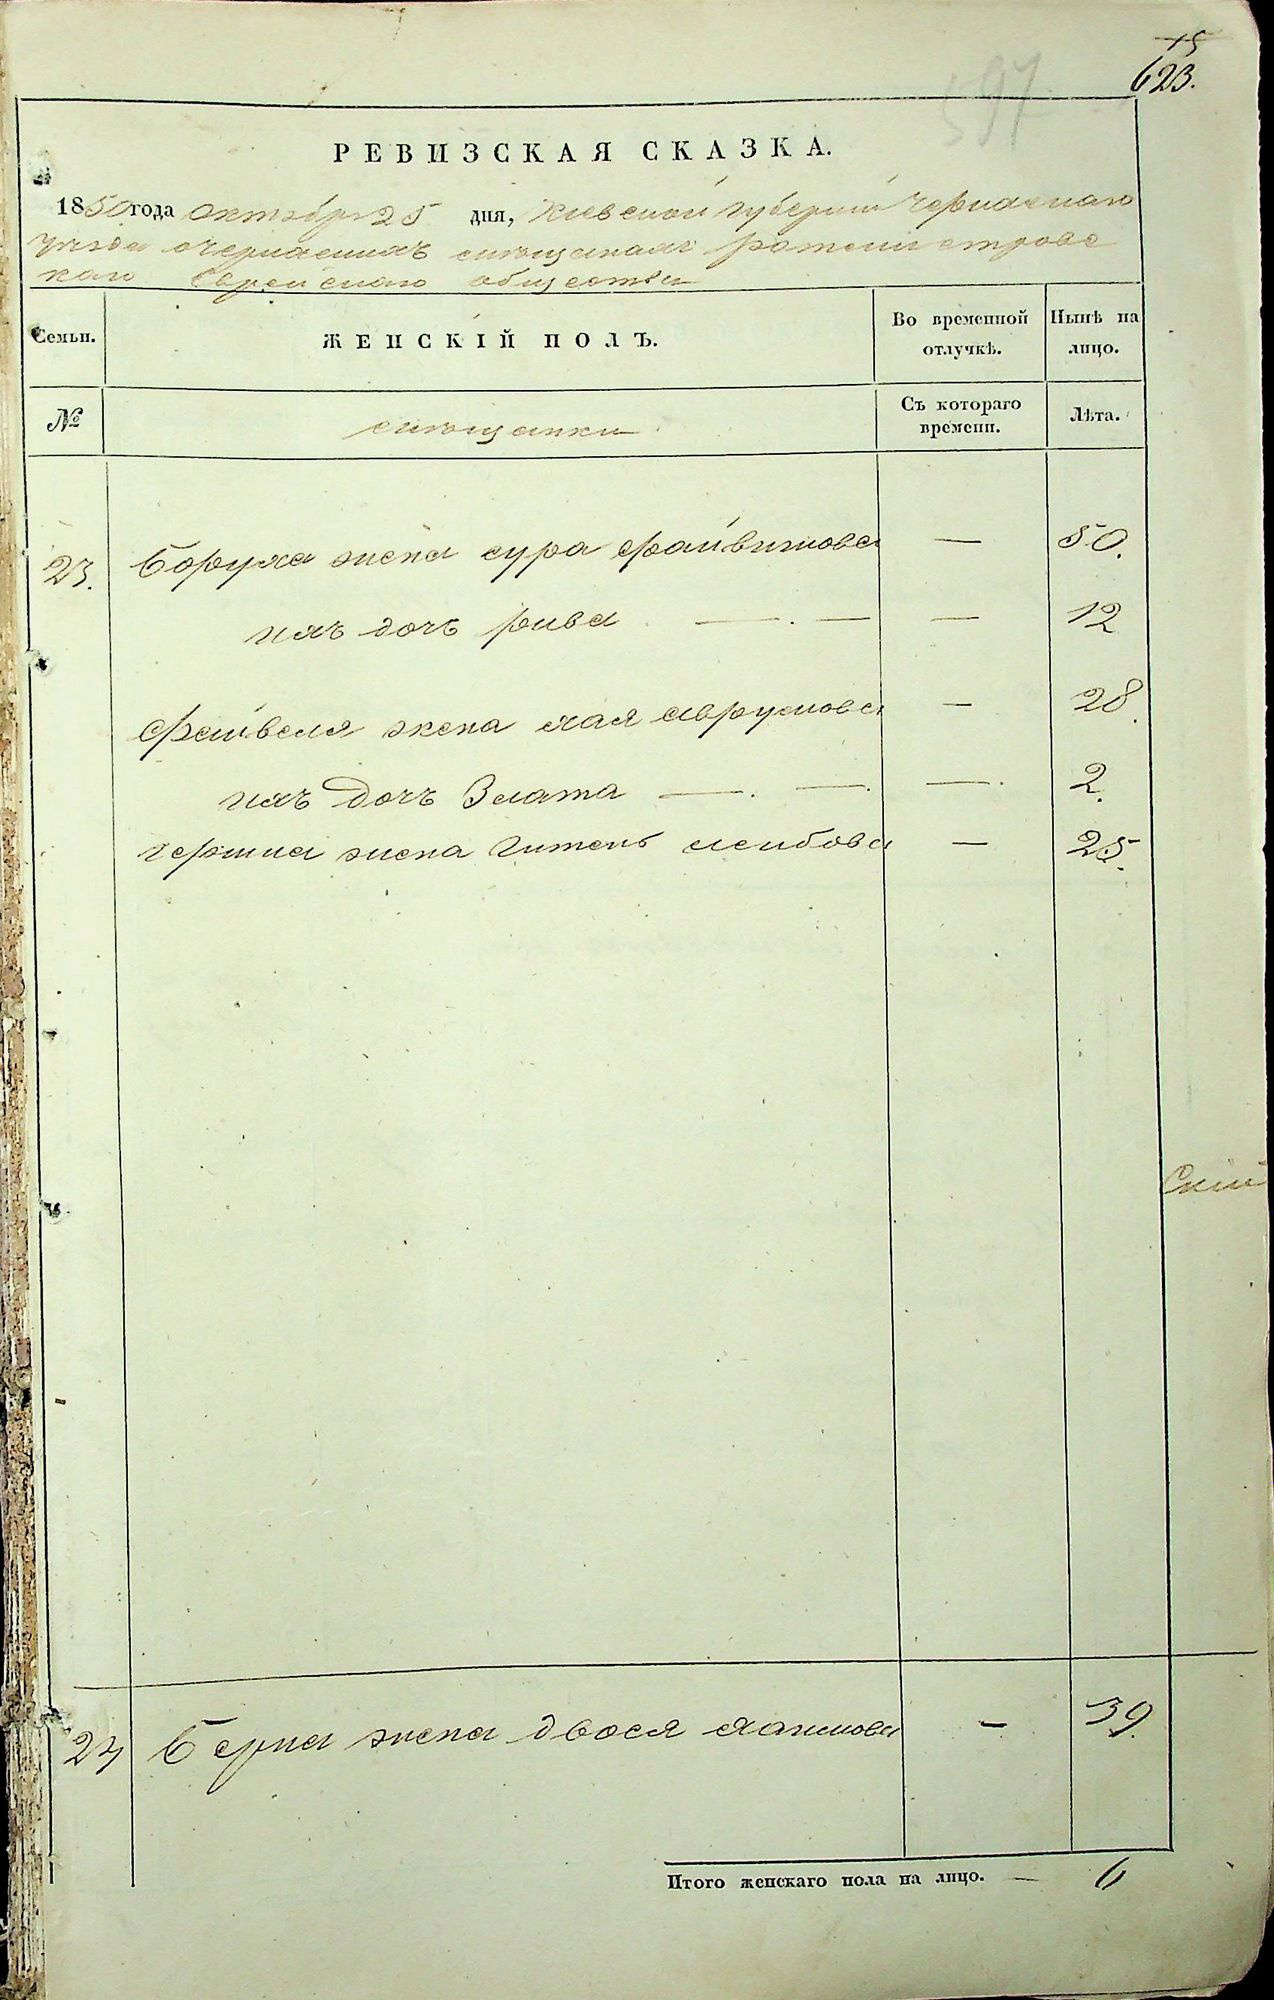 15
623.
597
РЕВИЗСКАЯ СКАЗКА.
1850 года октября 25 дня, Киевской губернии Черкаскаго
уезда очеркаскихъ мещанахъ ротмистровс
каго Еврейскаго общества
Семьи. ЖЕНСКІЙ ПОЛЪ. Во временной отлучкѣ. Нынѣ на лицо.
№ мещанки Съ котораго времени. Лѣта.
23. Боруха жена сура файвишова — 50.
ихъ доч рива — . — — 12
Файвеля жена хая аврумова — 28.
ихъ доч Злата — . — . — . 2.
гершка жена Гитель лейбова — 25.
Скій
24 Берка жена двося хаимова — 39.
Итого женскаго пола на лицо. — 6